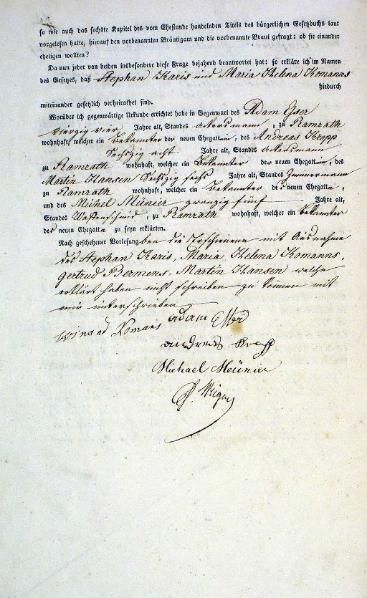 so wie auch das sechste Kapitel des vom Ehestande handelnden Titels des bürgerlichen Gesetzbuchs laut
vorgelesen hatte, hierauf den vorbenannten Bräutigam und die vorbenannte Braut gefragt: ob sie einander
ehelichen wollten?
Da nun jeder von beiden insbesondere diese Frage bejahend beantwortet hat: so erkläre ich im Namen
des Gesetzes, daß Stephan Karis und Maria Helena Komanns
hierdurch
miteinander gesetzlich verheirathet sind.
Worüber ich gegenwärtige Urkunde errichtet habe in Gegenwart des Adam Esser
vierzig vier Jahre alt, Standes Ackersmann, zu Ramrath
wohnhaft, welcher ein Bekannter der neuen Ehegatten, des Andreas Kropp
sechszig acht Jahre alt, Standes Ackersmann
zu Ramrath wohnhaft, welcher ein Bekannter der neuen Ehegatten, des
Martin Hansen sechszig sechs Jahre alt, Standes Zimmermann
zu Ramrath wohnhaft, welcher ein Bekannter der neuen Ehegatten,
und des Michel Münier zwanzig fünf Jahre alt,
Standes zu Ramrath wohnhaft, welcher ein Bekannter
der neuen Ehegatten zu seyn erklärten.
Nach geschehener Vorlesung haben die mit Ausnahme
des Stephan Karis, Maria Helena Komanns
Gertrud Martin Hansen welche
erklärt haben nicht schreiben zu können mit
mir unterschrieben
Winand Komans Adam Esser
Andreas
Michael Meünier